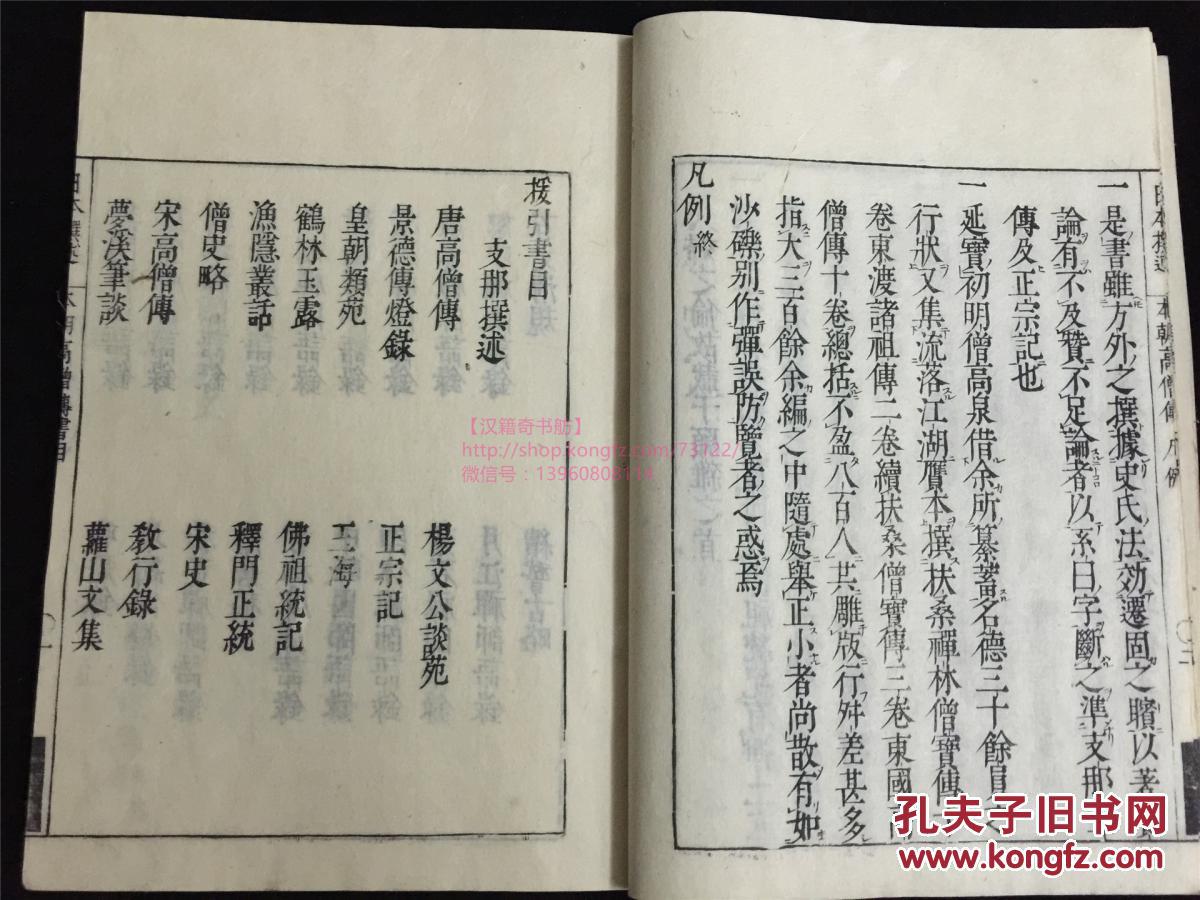 一是書雖方外之撰據史氏法効遷固之贖以著
論有不及贊不足論者以系曰字斷之準支那
傳及正宗記也
一延寶初明僧高泉借余所纂蓄名德三十餘員之
行狀又集流落江湖贋本撰扶桑禪林僧寶傳
卷東渡諸祖傳二卷續扶桑僧寶傳三卷東國高
僧傳十卷總括不盈八百人共雕版行舛差甚多
指大三百餘余編之中隨處舉正小者尚散有如
沙礫別作彈誤防覽者之惑焉
凡例終
援引書目
支那撰述
唐高僧傳
楊文公談苑
景德傳燈錄
正宗記
皇朝類苑
玉海
鶴林玉露
佛祖統記
漁隱叢話
釋門正統
僧史略
宋史
宋高僧傳
教行錄
夢溪筆談
蘿山文集
本朝高僧傳 凡例
【汉籍奇书舫】
http://shop.kongfz.com/73122/
微信号：13960808114
孔夫子旧书网
www.kongfz.com